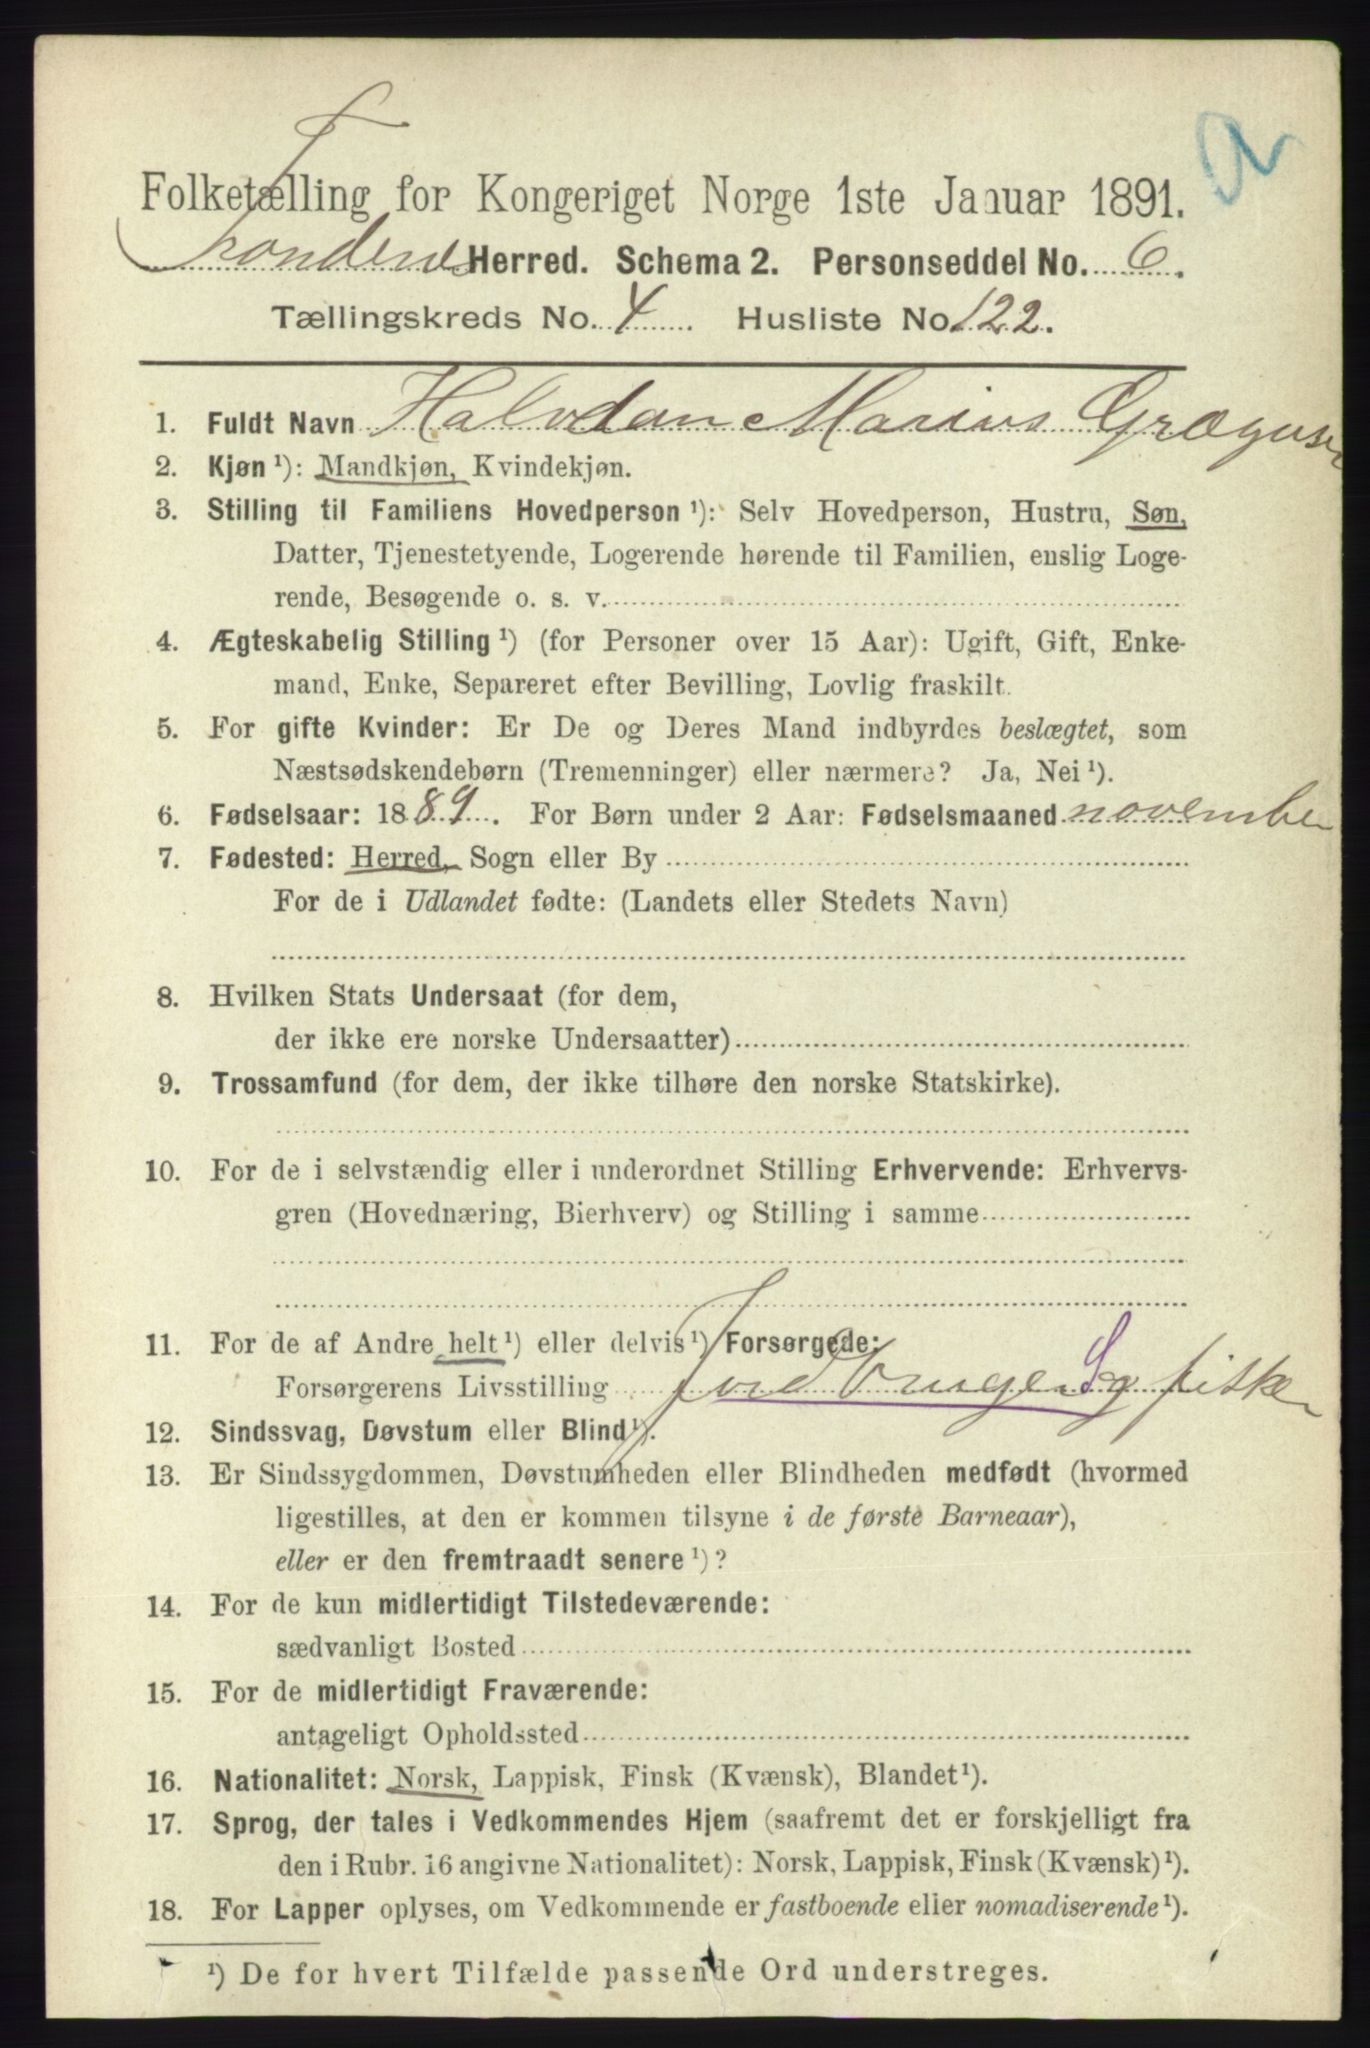 Folketælling for Kongeriget Norge 1ste Januar 1891.
Trondenes Herred. Schema 2. Personseddel No. 6.
Tællingskreds No. 4 Husliste No. 122.
1. Fuldt Navn Halvdan Marius Grægusen
2. Kjøn ¹): Mandkjøn, Kvindekjøn.
3. Stilling til Familiens Hovedperson ¹): Selv Hovedperson, Hustru, Søn,
Datter, Tjenestetyende, Logerende hørende til Familien, enslig Loge-
rende, Besøgende o. s. v.
4. Ægteskabelig Stilling ¹) (for Personer over 15 Aar): Ugift, Gift, Enke-
mand, Enke, Separeret efter Bevilling, Lovlig fraskilt.
5. For gifte Kvinder: Er De og Deres Mand indbyrdes beslægtet, som
Næstsødskendebørn (Tremenninger) eller nærmere? Ja, Nei ¹).
6. Fødselsaar: 1889. For Børn under 2 Aar: Fødselsmaaned november
7. Fødested: Herred, Sogn eller By
For de i Udlandet fødte: (Landets eller Stedets Navn)
8. Hvilken Stats Undersaat (for dem,
der ikke ere norske Undersaatter)
9. Trossamfund (for dem, der ikke tilhøre den norske Statskirke).
10. For de i selvstændig eller i underordnet Stilling Erhvervende: Erhvervs-
gren (Hovednæring, Bierhverv) og Stilling i samme
11. For de af Andre helt ¹) eller delvis ¹) Forsørgede:
Forsørgerens Livsstilling Jordbruger og fisker
12. Sindssvag, Døvstum eller Blind ¹).
13. Er Sindssygdommen, Døvstumheden eller Blindheden medfødt (hvormed
ligestilles, at den er kommen tilsyne i de første Barneaar),
eller er den fremtraadt senere ¹)?
14. For de kun midlertidigt Tilstedeværende:
sædvanligt Bosted
15. For de midlertidigt Fraværende:
antageligt Opholdssted
16. Nationalitet: Norsk, Lappisk, Finsk (Kvænsk), Blandet ¹).
17. Sprog, der tales i Vedkommendes Hjem (saafremt det er forskjelligt fra
den i Rubr. 16 angivne Nationalitet): Norsk, Lappisk, Finsk (Kvænsk) ¹).
18. For Lapper oplyses, om Vedkommende er fastboende eller nomadiserende ¹).
¹) De for hvert Tilfælde passende Ord understreges.